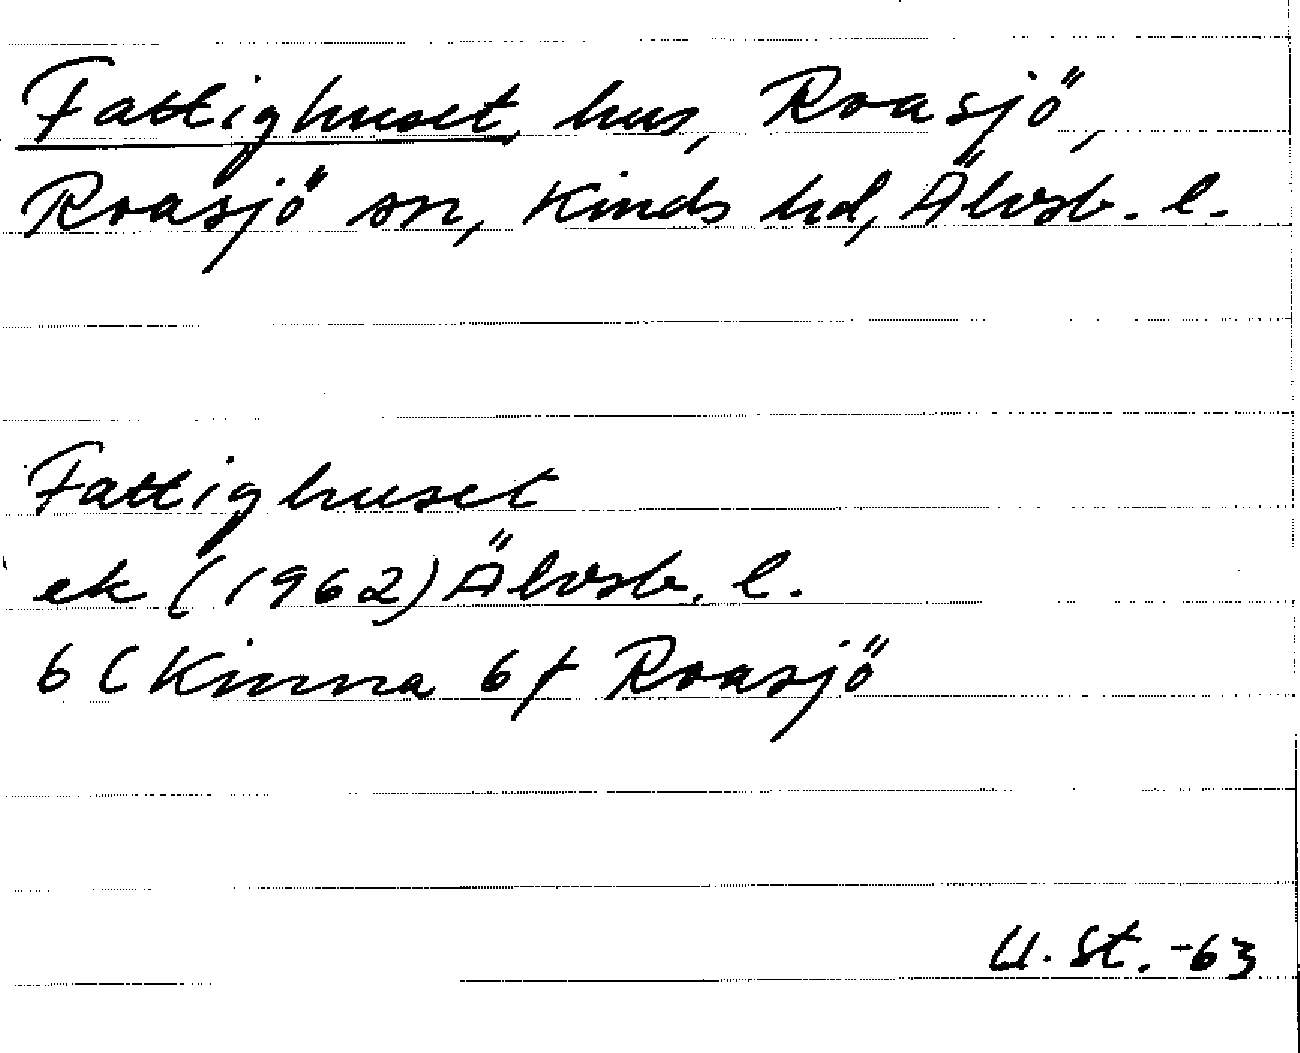 Fattighuset, hus, Roasjö,
Roasjö sn, Kinds hd, Älvsb. l.
Fattighuset
ek (1962) Älvsb. l.
6 (Kinna 6f Roasjö
U. St. -63